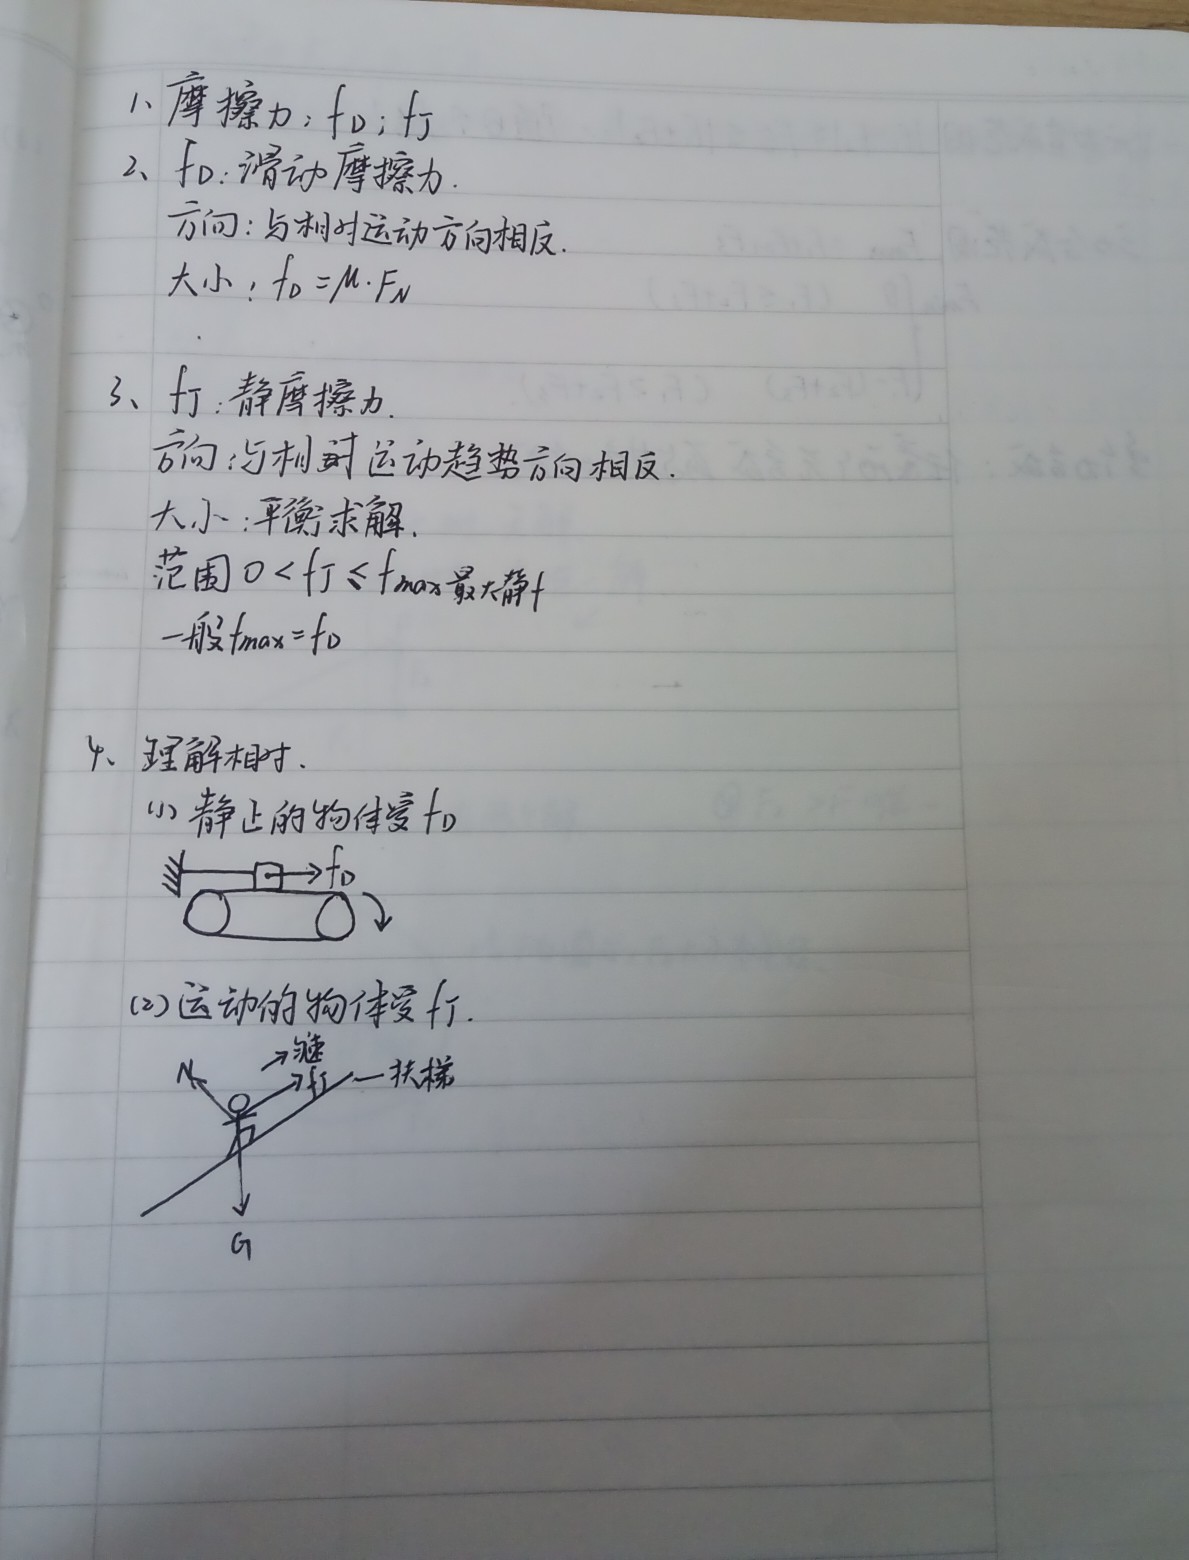 1、摩擦力:fD;fJ
2、fD:滑动摩擦力.
方向:与相对运动方向相反.
大小:fD=μ·FN
3、fJ:静摩擦力.
方向:与相对运动趋势方向相反.
大小:平衡求解.
范围0<fJ≤fmax最大静f
一般fmax=fD
4、理解相对.
(1)静止的物体受fD
fD
(2)运动的物体受fJ.
匀速
N
fJ
扶梯
G